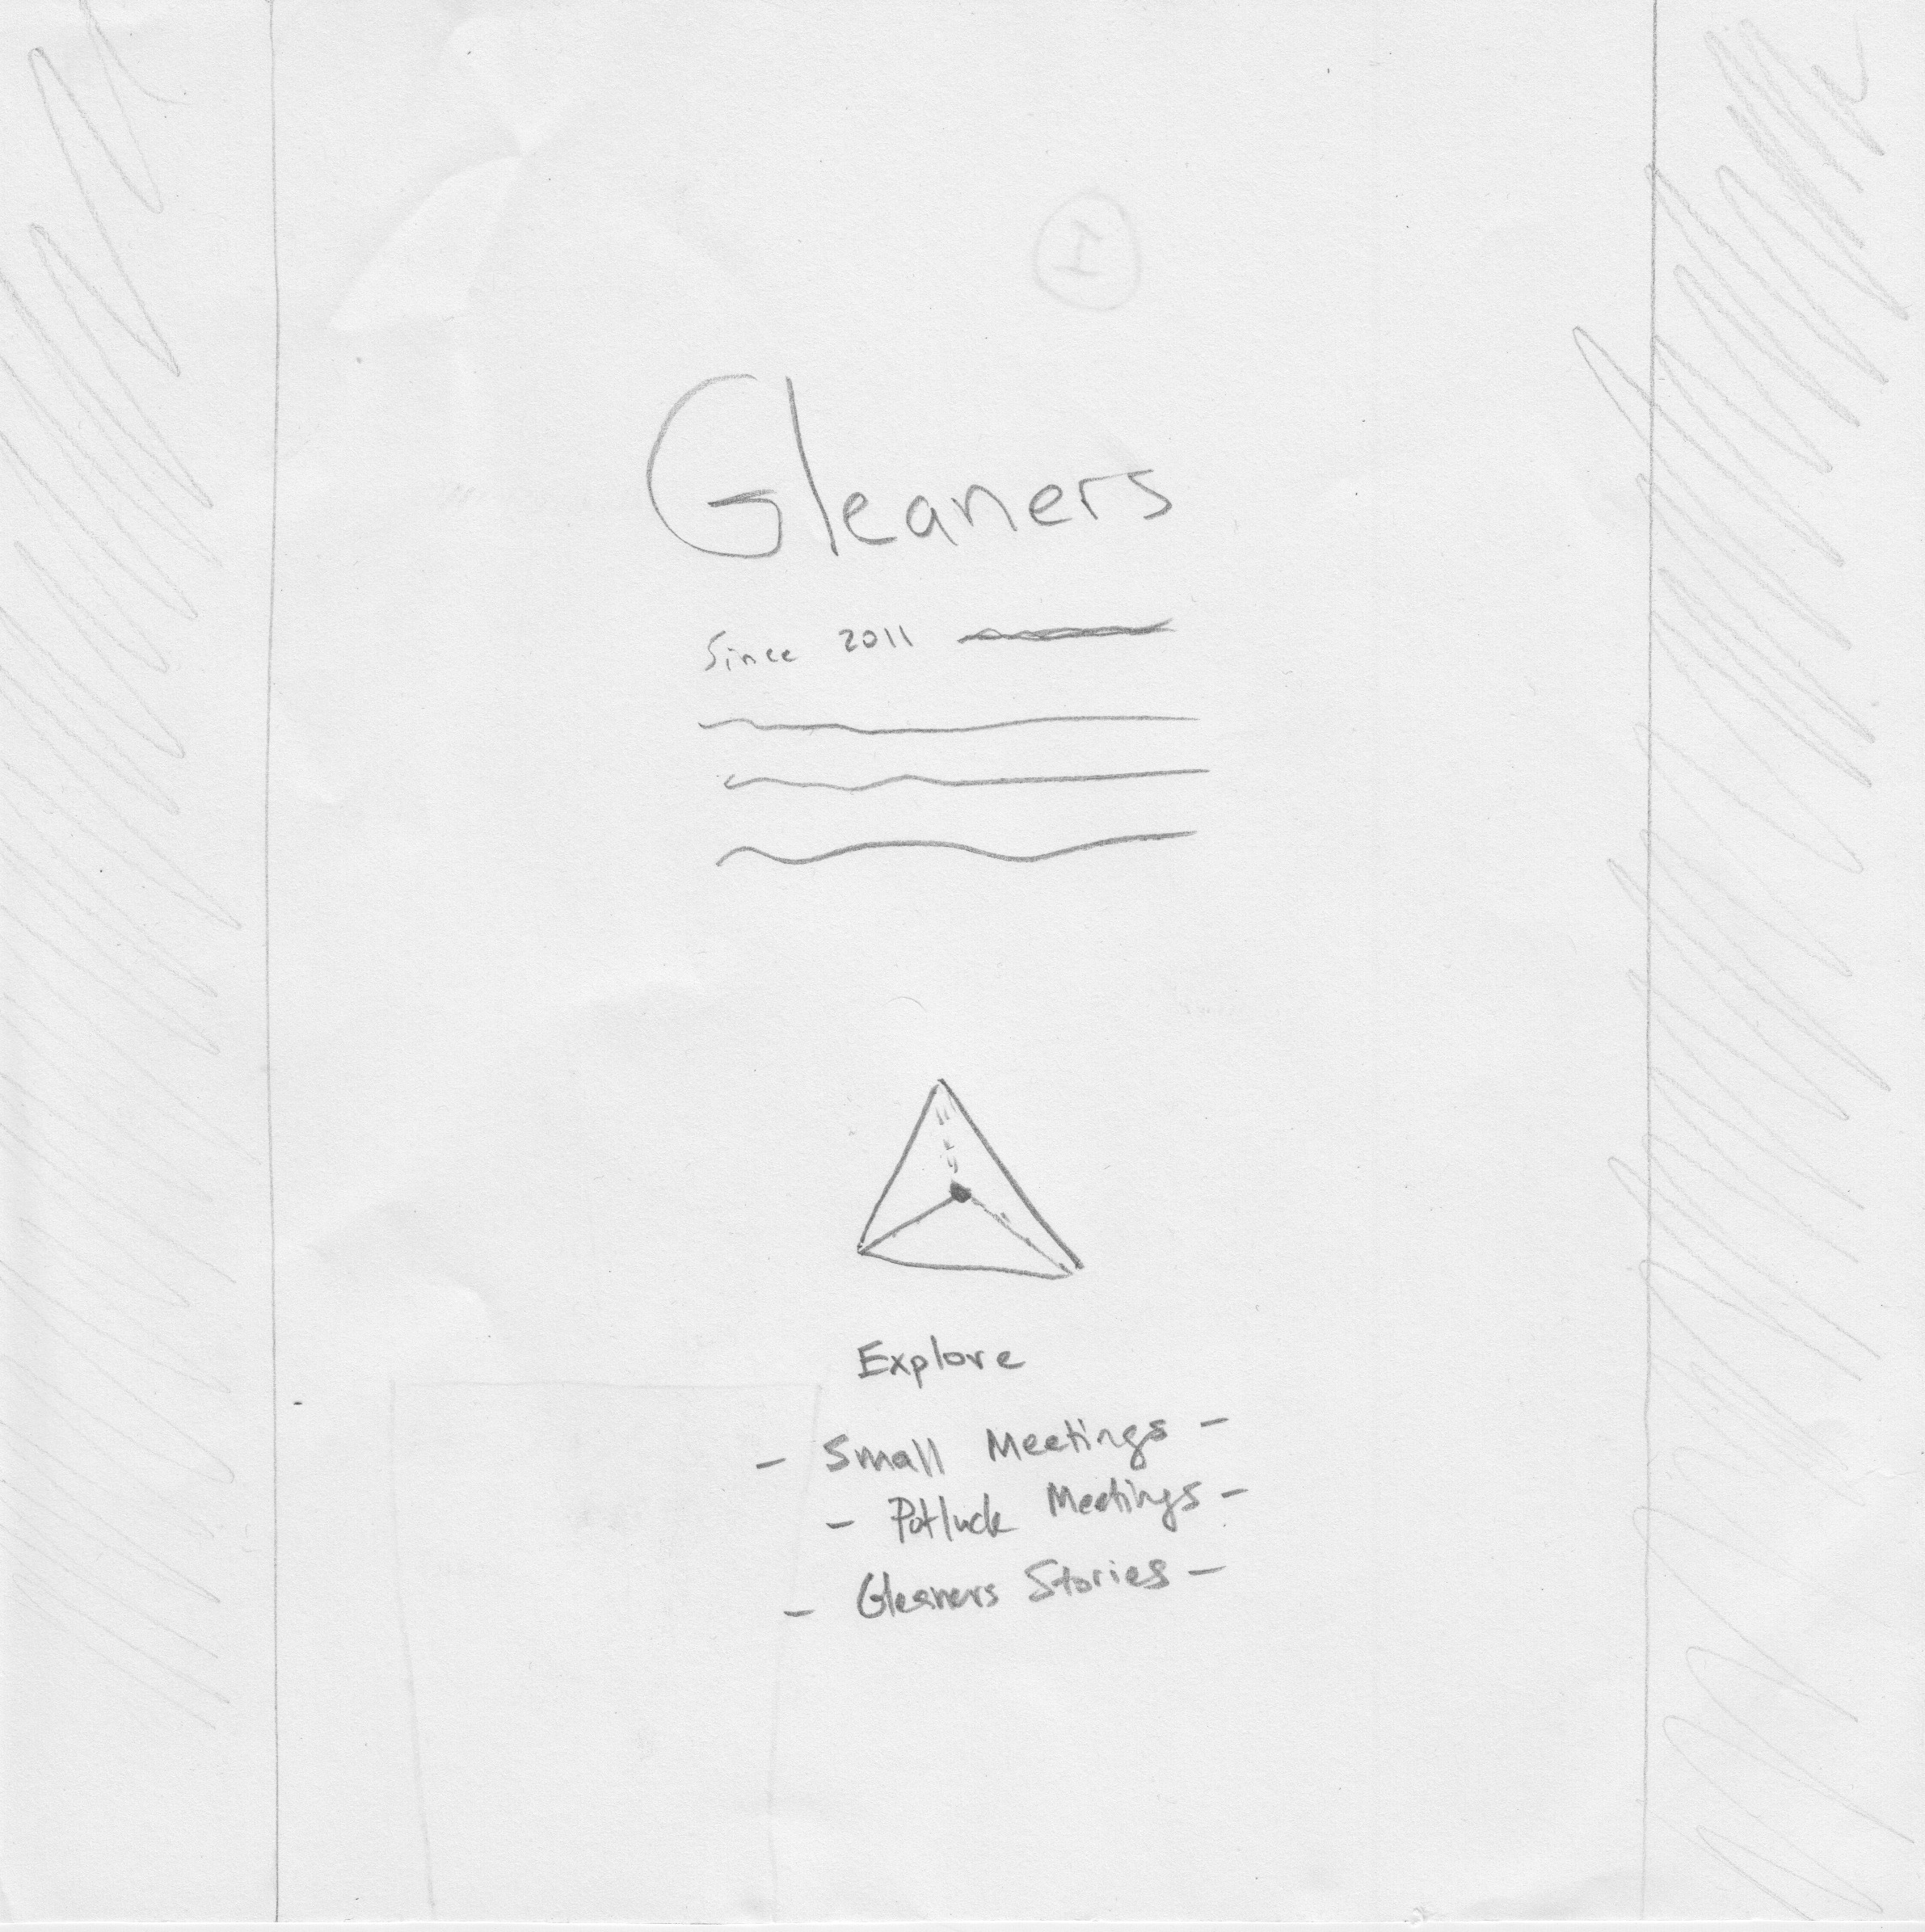 I
Gleaners
Since 2011
Explore
- Small Meetings -
- Potluck Meetings -
- Gleaners Stories -